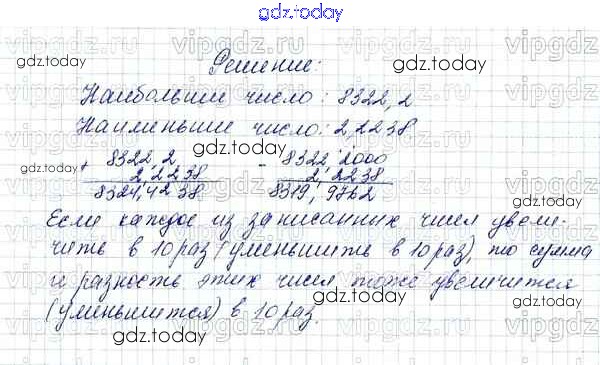 gdz.today
vipgdz.ru vipgdz.ru vipgdz.ru
Решение:
gdz.today gdz.today
Наибольшие число: 8322,2
Наименьшие число: 2,2238
+ 8322,2 - 8322,2000
2,2238 2,2238
8324,4238 8319,9762
gdz.today gdz.today
Если каждое из записанных чисел увели-
чить в 10 раз (уменьшить в 10 раз), то сумма
и разность этих чисел тоже увеличится
(уменьшится) в 10 раз.
gdz.today gdz.today
gdz.today